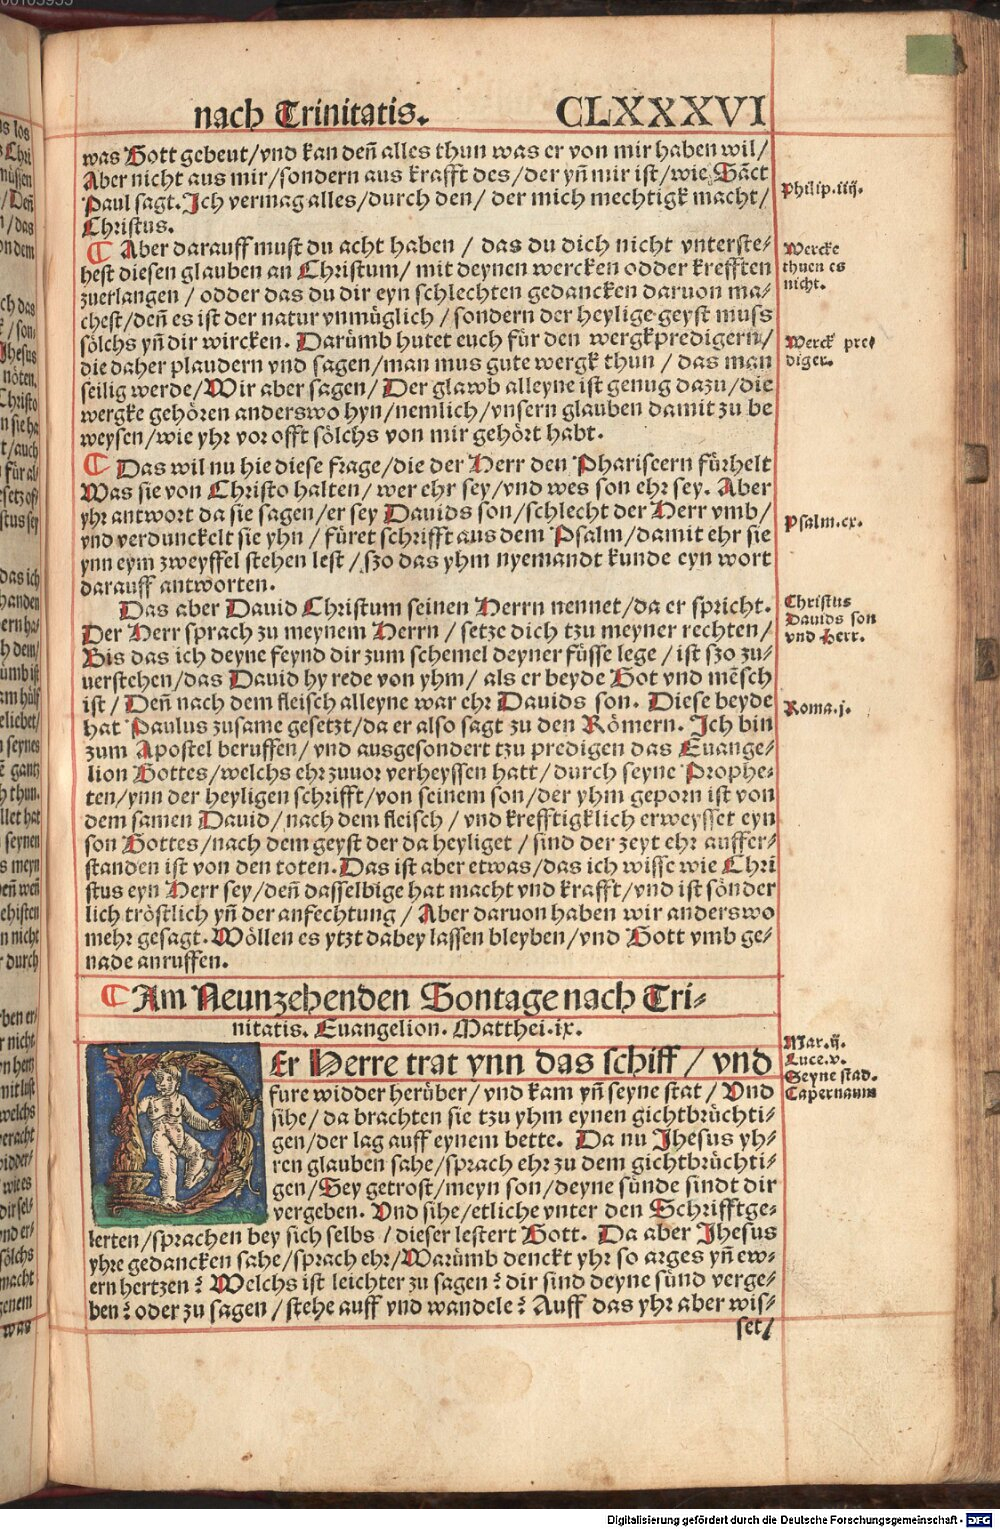 nach Trinitatis. CLXXXVI
was Gott gebeut/vnd kan deñ alles thun was er von mir haben wil/
Aber nicht aus mir/sondern aus krafft des/der yñ mir ist/wie Sãct
Paul sagt. Ich vermag alles/durch den/ der mich mechtigk macht/
Christus.
Philip.iiij.
¶ Aber darauff must du acht haben / das du dich nicht vnterste⸗
hest diesen glauben an Christum/ mit deynen wercken odder krefften
zuerlangen / odder das du dir eyn schlechten gedancken daruon ma⸗
chest/deñ es ist der natur vnmüglich / sondern der heylige geyst muss
sölchs yñ dir wircken. Darümb hutet euch für den wergkpredigern/
die daher plaudern vnd sagen/man mus gute wergk thun / das man
seilig werde/Wir aber sagen/ Der glawb alleyne ist genug dazu/die
wergke gehören anderswo hyn/nemlich/vnsern glauben damit zu be
weysen/wie yhr vor offt sölchs von mir gehört habt.
Wercke
thuen es
nicht.
Werck pre⸗
diger.
¶ Das wil nu hie diese frage/die der Herr den Phariseern fürhelt
Was sie von Christo halten/ wer ehr sey/vnd wes son ehr sey. Aber
yhr antwort da sie sagen/er sey Dauids son/schlecht der Herr vmb/
vnd verdunckelt sie yhn / füret schrifft aus dem Psalm/damit ehr sie
ynn eym zweyffel stehen lest /szo das yhm nyemandt kunde eyn wort
darauff antworten.
Psalm.cx.
Das aber Dauid Christum seinen Herrn nennet/da er spricht.
Der Herr sprach zu meynem Herrn / setze dich tzu meyner rechten/
Bis das ich deyne feynd dir zum schemel deyner füsse lege / ist szo zu⸗
uerstehen/das Dauid hy rede von yhm/ als er beyde Got vnd mẽsch
ist / Deñ nach dem fleisch alleyne war ehr Dauids son. Diese beyde
hat Paulus zusame gesetzt/da er also sagt zu den Römern. Ich bin
zum Apostel beruffen/ vnd ausgesondert tzu predigen das Euange⸗
lion Gottes/welchs ehr zuuor verheyssen hatt/durch seyne Prophe⸗
ten/ynn der heyligen schrifft/von seinem son/der yhm geporn ist von
dem samen Dauid/nach dem fleisch / vnd krefftigklich erweysset eyn
son Gottes/nach dem geyst der da heyliget / sind der zeyt ehr auffer⸗
standen ist von den toten. Das ist aber etwas/das ich wisse wie Chri
stus eyn Herr sey/deñ dasselbige hat macht vnd krafft/vnd ist sönder
lich tröstlich yñ der anfechtung / Aber daruon haben wir anderswo
mehr gesagt. Wöllen es ytzt dabey lassen bleyben/vnd Gott vmb ge⸗
nade anruffen.
Christus
Dauids son
vnd Herr.
Roma.j.
¶ Am Neunzehenden Sontage nach Tri⸗
nitatis. Euangelion. Matthei.ix.
DEr Herre trat ynn das schiff / vnd
fure widder herüber/ vnd kam yñ seyne stat / Vnd
sihe/ da brachten sie tzu yhm eynen gichtbrüchti⸗
gen/der lag auff eynem bette. Da nu Jhesus yh⸗
ren glauben sahe/sprach ehr zu dem gichtbrüchti⸗
gen/Sey getrost/meyn son/deyne sünde sindt dir
vergeben. Vnd sihe/etliche vnter den Schrifftge⸗
lerten/sprachen bey sich selbs / dieser lestert Gott. Da aber Jhesus
yhre gedancken sahe/sprach ehr/Warümb denckt yhr so arges yñ ew⸗
ern hertzen? Welchs ist leichter zu sagen? dir sind deyne sünd verge⸗
ben? oder zu sagen / stehe auff vnd wandele? Auff das yhr aber wis⸗
set/
Mar.ij.
Luce.v.
Seyne stad.
Capernaum
Digitalisierung gefördert durch die Deutsche Forschungsgemeinschaft - DFG